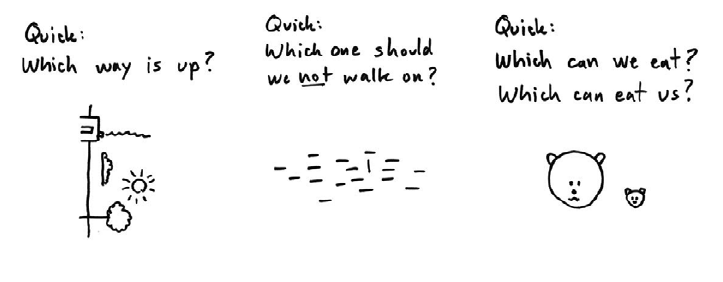 Quick:
Which way is up?
Quick:
Which one should
we not walk on?
Quick:
Which can we eat?
Which can eat us?